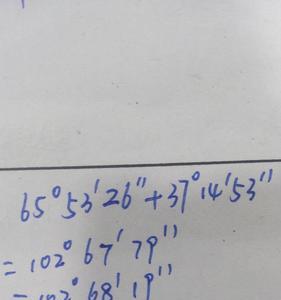 65°53′26″+37°14′53″
=102°67′79″
=102°68′19″